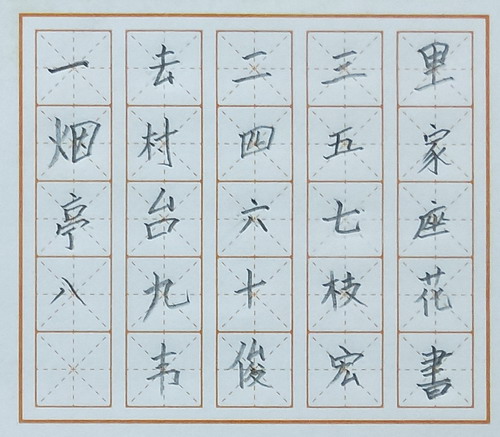 一去二三里
烟村四五家
亭台六七座
八九十枝花
韦俊宏書